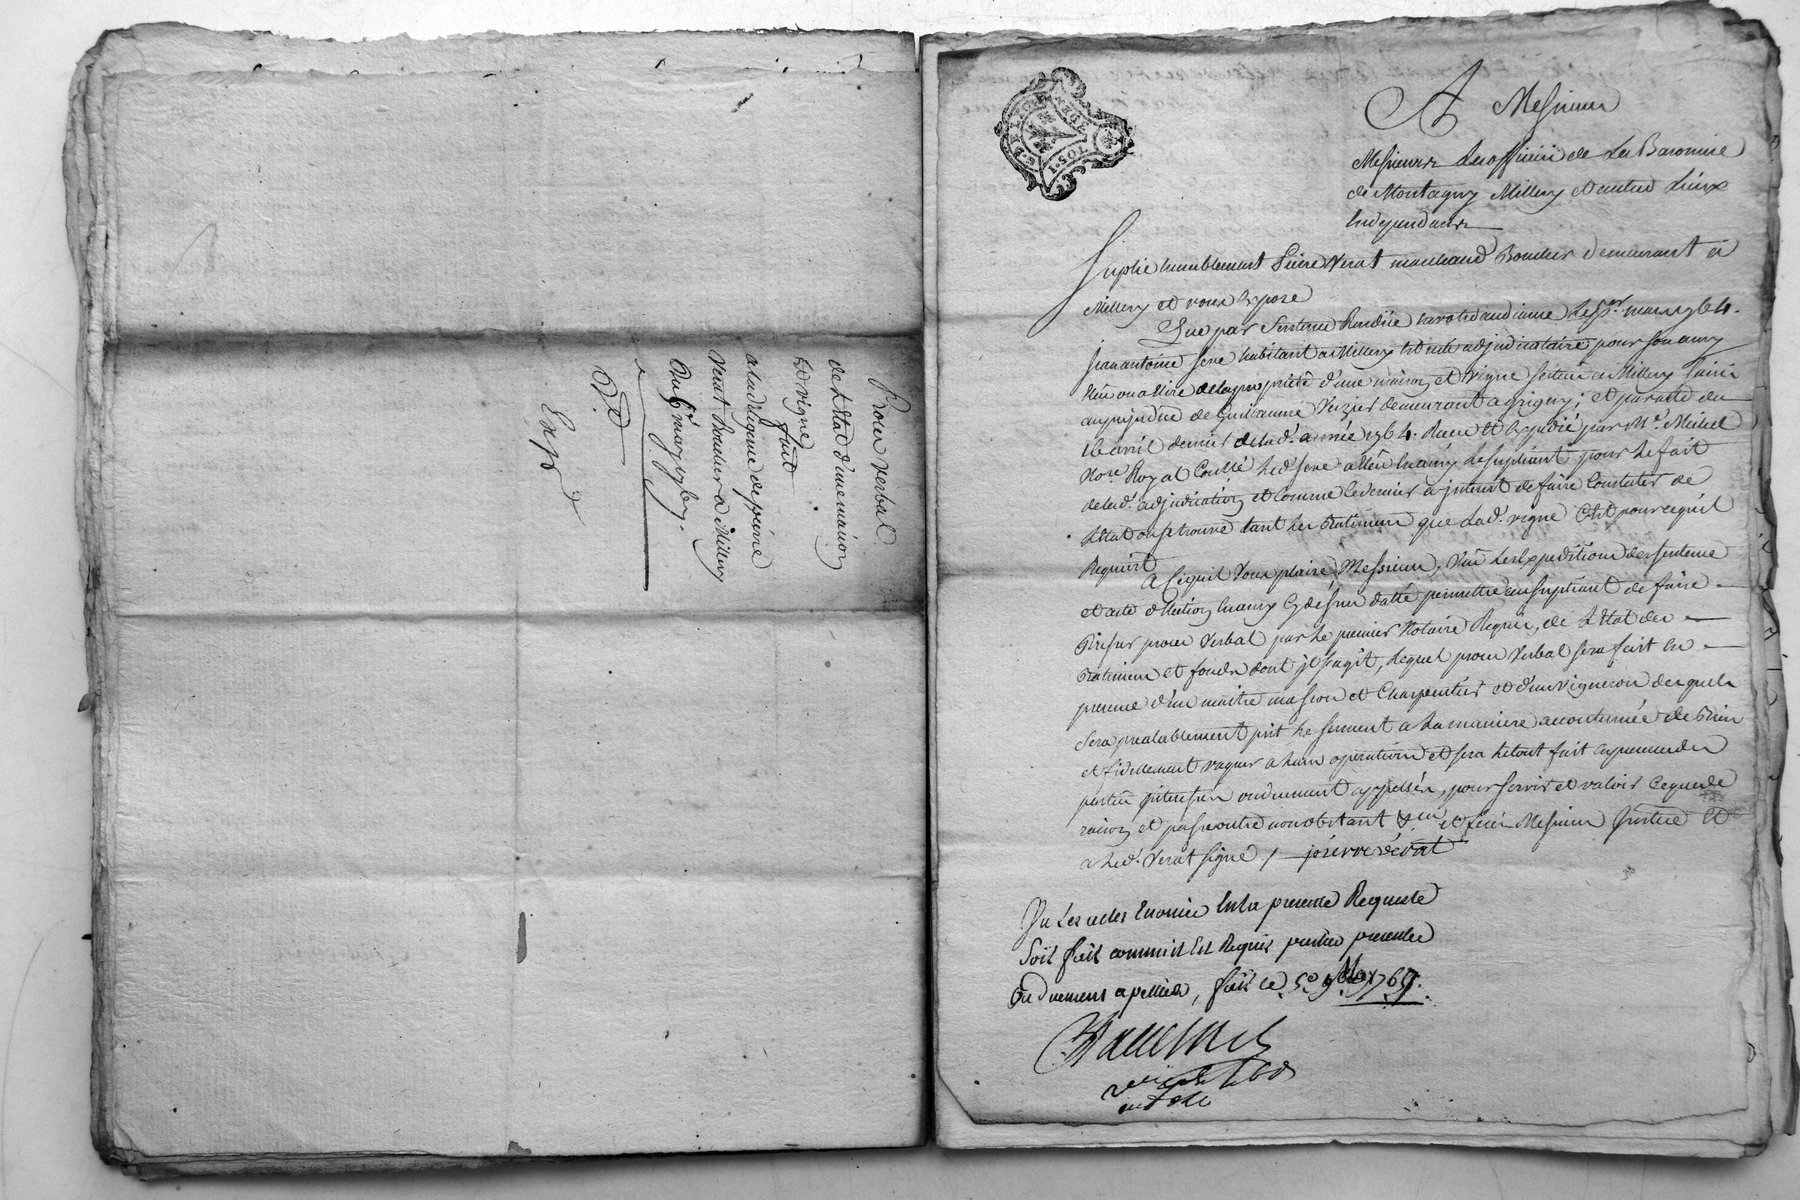 Procès verbal
de L'Etat d'une maison
Et vigne
fait
a la diligence de pierre
Verat Boucher a Millery
Du 6e may 1765.
Exp.
G. DE LYON
1. SOL
A Messieurs
Messieurs Les officiers de La Baronnie
de Montagny Millery et autres Lieux
Indépendants
Suplie humblement Pierre Verat marchand Boucher demeurant a
Millery et vous Expose
Que par Sentence Rendüe en votre audience Le mars 1764.
Jean antoine Seve habitant a Millery adjudicataire pour son amy
Elû ou a Elire de la propriété d'une maison et vigne scituée a Millery Saisie
au préjudice de Guillaume Vezier demeurant a grigny; et par acte du
16 avril dernier de lad. année 1764. Receu et Expedié par Me. Michel
Nore. Royal Led. Seve a Elû En amy Le Supliant pour le fait
de lad. adjudication et comme Ce dernier a interest de faire Constater de
L'Etat ou se trouve tant Les Batimens que Lad. vigne C'est pourcequ'il
Requiert
A Ce qu'il Vous plaise, Messieurs, Vû Les Expeditions des sentence
et acte d'Election En amy Cy dessus datté permettre au supliant de faire
Dresser procès Verbal par Le premier Notaire Requis, de L'Etat des
Batimens et fonds dont il s'agit, Lequel procès Verbal sera fait En
presence d'un maitre masson et Charpentier et d'un vigneron desquels
sera prealablement prit Le serment a La maniere accoutumée de Bien
et fidellement vaquer a Leurs operations et sera Le tout fait En presence des
parties interessées ou duement appellées, pour servir et valoir Ce que de
raison, et passé outre nonobstant et ferés Messieurs Justice Et
a Led. Verat signé / pierre vérat
Vu Les actes Enoncé En La presente Requeste
Soit fait comme il Est Requis parties presentes
Ou duement apellées, fait ce 5e